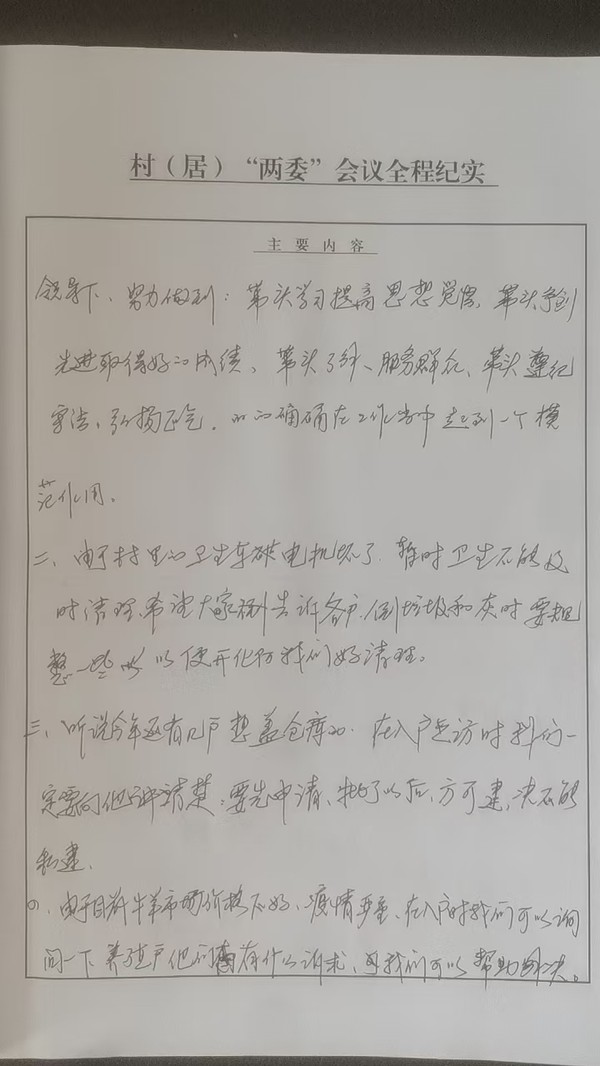 村（居）“两委”会议全程纪实
主要内容
领导下、努力做到：带头学习提高思想觉悟，带头争创
先进取得好的成绩、带头服务群众、带头遵纪
守法、弘扬正气，的的确确在工作当中起到一个模
范作用。
二、由于村里的卫生车电机坏了，暂时卫生不能及
时清理，希望大家告诉各户，倒垃圾和灰时要规
整一些以便开化后我们好清理。
三、听说今年还有几户想盖仓库的，在入户走访时我们一
定要向他讲清楚：要先申请、批了以后，方可建，决不能
私建。
四、由于目前牛羊市场价格不好、疫情严重、在入户时我们可以询
问一下养殖户他们有什么诉求，我们可以帮助解决。